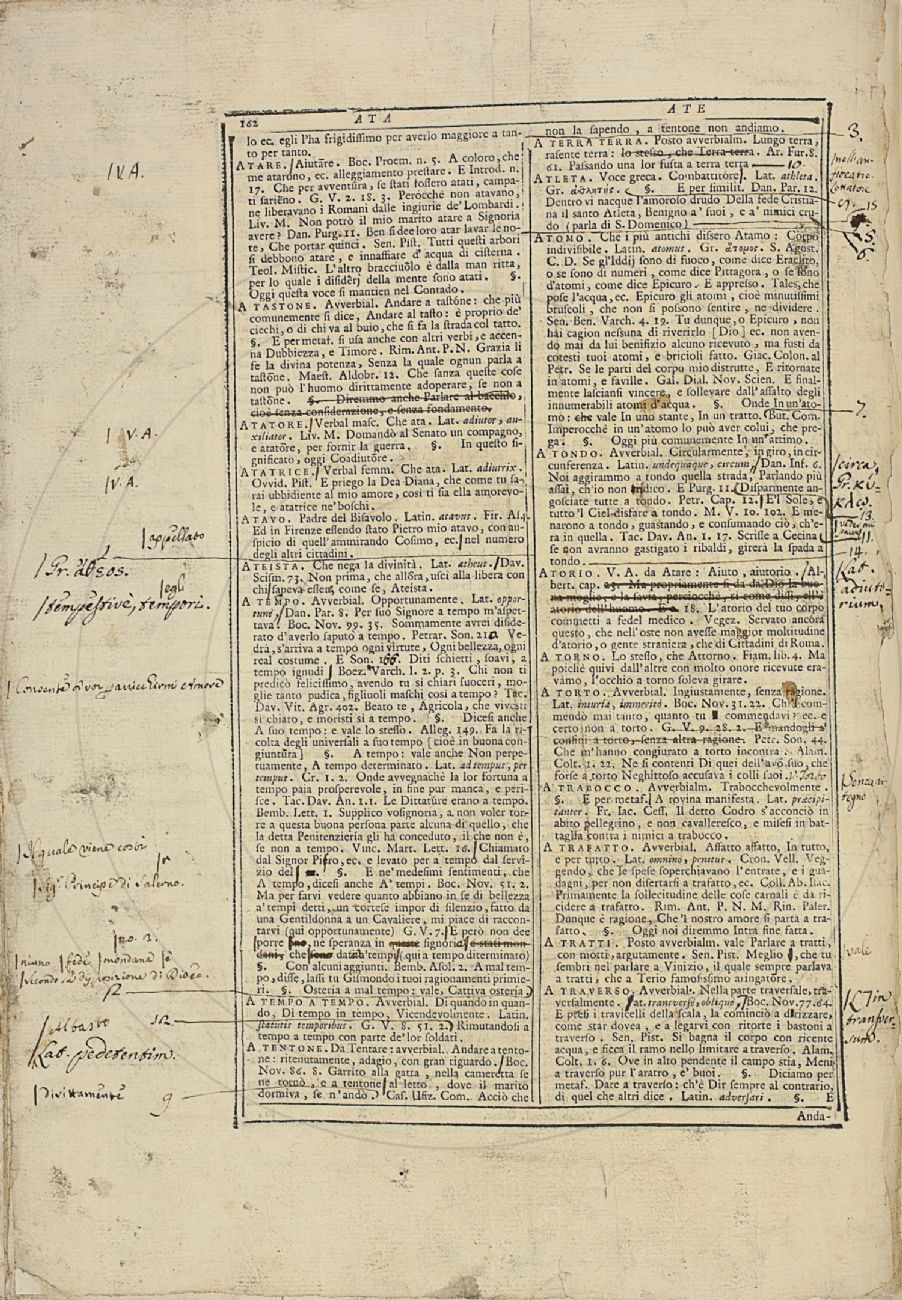 162
ATA
ATE
lo ec. egli l'ha frigidissimo per averlo maggiore a tan-
to per tanto.
ATARE. Aiutāre. Boc. Proem. n. 5. A coloro, che
me atarono, ec. alleggiamento prestare. E Introd. n.
17. Che per avventura, se stati fossero atati, campa-
ti sariēno. G. V. 2. 18. 3. Peròcchè non atavano,
ne liberavano i Romani dalle ingiurie de' Lombardi.
Liv. M. Non potrò il mio marito atare a Signoria
avere? Dan. Purg. 11. Ben si dee loro atar lavar le no-
te, Che portar quinci. Sen. Pist. Tutti questi arbori
si debbono atare, e innaffiare d'acqua di cisterna.
Teol. Mistic. L'altro bracciuōlo è dalla man ritta,
per lo quale i disidèrj della mente sono atati. §.
Oggi questa voce si mantien nel Contado.
A TASTONE. Avverbial. Andare a tastōne: che più
comunemente si dice, Andare al tasto: è proprio de'
ciechi, o di chi va al buio, che si fa la strada col tatto.
§. E per metaf. si usa anche con altri verbi, e accen-
na Dubbiezza, e Timore. Rim. Ant. P. N. Grazia li
fe la divina potenza, Senza la quale ognun parla a
tastōne. Maest. Aldobr. 12. Che sanza queste cose
non può l'huomo dirittamente adoperare, se non a
tastōne. §. Diremmo anche Parlare al bacchio,
cioè senza considerazione, e senza fondamento.
ATATORE. Verbal masc. Che ata. Lat. adiutor, au-
xiliator. Liv. M. Domandò al Senato un compagno,
e atatōre, per fornir la guerra. §. In questo si-
gnificato, oggi Coadiutōre.
ATATRICE. Verbal femm. Che ata. Lat. adiutrix.
Ovvid. Pist. E priego la Dea Diana, che come tu sa-
rai ubbidiente al mio amore, cosi ti sia ella amorevo-
le, e atatrice ne' boschi.
ATAVO. Padre del Bisavolo. Latin. atavus. Fir. As.
Ed in Firenze essendo stato Pietro mio atavo, con au-
spicio di quell'ammirando Cosimo, ec. nel numero
degli altri cittadini.
ATEISTA. Che nega la divinità. Lat. atheus. Dav.
Scism. 73. Non prima, che allōra, uscì alla libera con
chi sapeva essen, come se, Ateista.
A TEMPO. Avverbial. Opportunamente. Lat. oppor-
tunè. Dan. Par. 8. Per suo Signore a tempo m'aspet-
tava. Boc. Nov. 99. 35. Sommamente avrei diside-
rato d'averlo saputo a tempo. Petrar. Son. 210. Ve-
drà, s'arriva a tempo ogni virtute, Ogni bellezza, ogni
real costume. E Son. 166. Diti schietti, soavi, a
tempo ignudi Boez. Varch. l. 2. p. 3. Chi non ti
predicò felicissimo, avendo tu si chiari suoceri, mo-
glie tanto pudica, figliuoli maschi cosi a tempo? Tac.
Dav. Vit. Agr. 402. Beato te, Agricola, che vivesti
si chiaro, e moristi si a tempo. §. Dicesi anche
A suo tempo: e vale lo stesso. Alleg. 149. Fa la ri-
colta degli universali a suo tempo [cioè in buona con-
giuntūra] §. A tempo: vale anche Non perpe-
tuamente, A tempo determinato. Lat. ad tempus, per
tempus. Cr. 1. 2. Onde avvegnachè la lor fortuna a
tempo paia prosperevole, in fine pur manca, e peri-
sce. Tac. Dav. An. 1.1. Le Dittature erano a tempo.
Bemb. Lett. 1. Supplico vosignoria, a non voler tor-
re a questa buona persona parte alcuna di quello, che
la detta Penitenzieria gli ha conceduto, il che non è,
se non a tempo. Vinc. Mart. Lett. 16. Chiamato
dal Signor Pirro, ec. e levato per a tempo dal servi-
zio del §. E ne' medesimi sentimenti, che
A tempo, dicesi anche A' tempi. Boc. Nov. 51. 2.
Ma per farvi vedere quanto abbiano in se di bellezza
a' tempi detti, un cortese impor di silenzio, fatto da
una Gentildonna a un Cavaliere, mi piace di raccon-
tarvi (qui opportunamente) G. V. 7. E però non dee
porre ne speranza in signoria e stati mon-
dani, che data a' tempi (qui a tempo determinato)
§. Con alcuni aggiunti. Bemb. Asol. 2. A mal tem-
po, disse, lassi tu Gismondo i tuoi ragionamenti primie-
ri. §. Osteria a mal tempo: vale, Cattiva osteria
A TEMPO A TEMPO. Avverbial. Di quando in quan-
do, Di tempo in tempo, Vicendevolmente. Latin.
statutis temporibus. G. V. 8. 51. 2. Rimutandosi a
tempo a tempo con parte de' lor soldati.
A TENTONE. Da Tentare: avverbial. Andare a tento-
ne: ritenutamente, adagio, con gran riguardo. Boc.
Nov. 86. 8. Garrito alla gatta, nella cameretta se
ne tornò, e a tentone al letto, dove il marito
dormiva, se n'andò. Cas. Ufiz. Com. Acciò che
non la sapendo, a tentone non andiamo.
A TERRA TERRA. Posto avverbialm. Lungo terra,
rasente terra: lo stesso, che Terra terra. Ar. Fur. 8.
61. Passando una lor fusta a terra terra
ATLETA. Voce greca. Combattitōre. Lat. athleta.
Gr. ἀθλητής. §. E per similit. Dan. Par. 12.
Dentro vi nacque l'amoroso drudo Della fede Cristia-
na il santo Atleta, Benigno a' suoi, e a' nimici cru-
do (parla di S. Domenico)
ATOMO. Che i più antichi dissero Atamo: Corpo
indivisibile. Latin. atomus. Gr. ἄτομος. S. Agost.
C. D. Se gl'Iddij sono di fuoco, come dice Eraclito,
o se sono di numeri, come dice Pittagora, o se sono
d'atomi, come dice Epicuro. E appresso. Tales, che
pose l'acqua, ec. Epicuro gli atomi, cioè minutissimi
bruscoli, che non si possono sentire, ne dividere.
Sen. Ben. Varch. 4. 19. Tu dunque, o Epicuro, non
hai cagion nessuna di riverirlo [Dio] ec. non aven-
do mai da lui benifizio alcuno ricevuto, ma fusti da
cotesti tuoi atomi, e bricioli fatto. Giac. Colon. al
Petr. Se le parti del corpo mio distrutte, E ritornate
in atomi, e faville. Gal. Dial. Nov. Scien. E final-
mente lasciansi vincere, e sollevare dall'assalto degli
innumerabili atomi d'acqua. §. Onde In un'ato-
mo: che vale In uno stante, In un tratto. But. Com.
Imperocchè in un'atomo lo può aver colui, che pre-
ga. §. Oggi più comunemente In un'attimo.
A TONDO. Avverbial. Circularmente, in giro, in cir-
cunferenza. Latin. undequaque, circum. Dan. Inf. 6.
Noi aggirammo a tondo quella strada, Parlando più
assai, ch'io non ridico. E Purg. 11. Disparmente an-
gosciate tutte a tondo. Petr. Cap. 12. E'l Sole, e
tutto 'l Ciel disfare a tondo. M. V. 10. 102. E me-
narono a tondo, guastando, e consumando ciò, ch'e-
ra in quella. Tac. Dav. An. 1. 17. Scrisse a Cecina
se non avranno gastigato i ribaldi, girerà la spada a
tondo.
ATORIO. V. A. da Atare: Aiuto, aiutorio. Al-
bert. cap. 23. Ma propriamente si da da Dio la buo-
na moglie, e la savia, perciocchè, si come dissi, ell'è
atorio dell'huomo. E c. 18. L'atorio del tuo corpo
commetti a fedel medico. Vegez. Servato ancora
questo, che nell'oste non avesse maggior moltitudine
d'atorio, o gente straniera, che di Cittadini di Roma.
A TORNO. Lo stesso, che Attorno. Fiam. lib. 4. Ma
poichè quivi dall'altre con molto onore ricevute era-
vamo, l'occhio a torno soleva girare.
A TORTO. Avverbial. Ingiustamente, senza ragione.
Lat. iniuria, immeritò. Boc. Nov. 31. 22. Che'l com-
mendò mai tanto, quanto tu commendavi? ec. e
certo non a torto. G. V. 9. 28. 2. E mandogli a'
confini a torto, senza altra ragione. Petr. Son. 44.
Che m'hanno congiurato a torto incontra. Alam.
Colt. 1. 22. Ne si contenti Di quei dell'avo suo, che
forse a torto Neghittoso accusava i colli suoi. V. Torto
A TRABOCCO. Avverbialm. Trabocchevolmente.
§. E per metaf. A rovina manifesta. Lat. præcipi-
tanter. Fr. Iac. Cess. Il detto Codro s'acconciò in
abito pellegrino, e non cavalleresco, e misesi in bat-
taglia contra i nimici a trabocco.
A TRAFATTO. Avverbial. Affatto affatto, In tutto,
e per tutto. Lat. omninò, penitus. Cron. Vell. Veg-
gendo, che le spese soperchiavano l'entrate, e i gua-
dagni, per non disertarsi a trafatto, ec. Coll. Ab. Isac.
Primamente la sollecitudine delle cose carnali è da ri-
cidere a trafatto. Rim. Ant. P. N. M. Rin. Paler.
Dunque è ragione, Che 'l nostro amore si parta a tra-
fatto. §. Oggi noi diremmo Intra fine fatta.
A TRATTI. Posto avverbialm. vale Parlare a tratti,
con motti, argutamente. Sen. Pist. Meglio, che tu
sembri nel parlare a Vinizio, il quale sempre parlava
a tratti, che a Terio famosissimo aringatore.
A TRAVERSO. Avverbial. Nella parte traversale, tra-
versalmente. Lat. transversè, obliquè. Boc. Nov. 77. 64.
E presi i travicelli della scala, la cominciò a dirizzare,
come star dovea, e a legarvi con ritorte i bastoni a
traverso. Sen. Pist. Si bagna il corpo con ricente
acqua, e ficca il ramo nello limitare a traverso. Alam.
Colt. 1. 6. Ove in alto pendente il campo stia, Meni
a traverso pur l'aratro, e' buoi. §. Diciamo per
metaf. Dare a traverso: ch'è Dir sempre al contrario,
di quel che altri dice. Latin. adversari. §. E
Anda-
V. A.
V. A.
V. A.
appellato
Gr. ἄθεος.
egli
tempestivè, tempori.
Il quale viene cosi
Sig.r Principe di Salerno.
no. 2.
niuno fede mondana è
12
162
Lat. pedetentim.
Dirittamente
9
3.
10
15
5.
6.
7.
circa,
Gr. κύ-
κλῳ.
13
11.
14.
Lat.
adiuto-
rium,
Senza ri-
tegno
vale
L. in
transver-
sum.